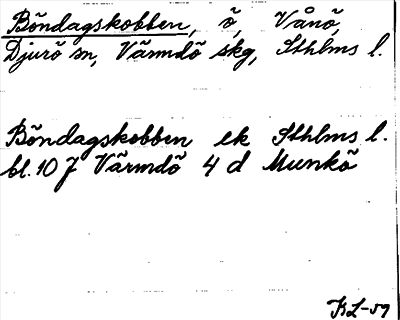 Böndagskobben, ö, Vånö,
Djurö sn, Värmdö skg, Sthlms l.
Böndagskobben ek Sthlms l.
bl. 10 J Värmdö 4 d Munkö
KL-59